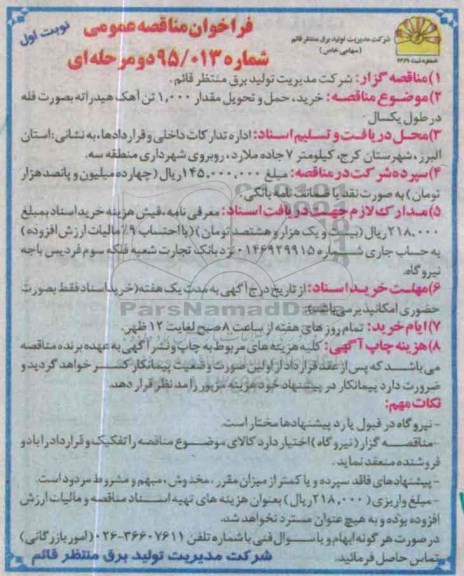 نوبت اول
فراخوان مناقصه عمومی
شماره ۹۵/۰۱۳ دو مرحله ای
شرکت مدیریت تولید برق منتظر قائم
(سهامی خاص)
۱) مناقصه گزار: شرکت مدیریت تولید برق منتظر قائم.
۲) موضوع مناقصه: خرید، حمل و تحویل مقدار ۱,۰۰۰ تن آهک هیدراته بصورت فله
در طول یکسال.
۳) محل دریافت و تسلیم اسناد: اداره تدارکات داخلی و قراردادها، به نشانی: استان
البرز، شهرستان کرج، کیلومتر ۷ جاده ملارد، روبروی شهرداری منطقه سه.
۴) سپرده شرکت در مناقصه: مبلغ ۱۴۵,۰۰۰,۰۰۰ ریال (چهارده میلیون و پانصد هزار
تومان) به صورت نقد یا ضمانت نامه بانکی.
۵) مدارک لازم جهت دریافت اسناد: معرفی نامه، فیش هزینه خرید اسناد بمبلغ
۲۱۸,۰۰۰ ریال (بیست و یک هزار و هشتصد تومان) (با احتساب ۹٪ مالیات ارزش افزوده)
به حساب جاری شماره ۰۱۴۶۹۲۹۹۱۵ نزد بانک تجارت شعبه فلکه سوم فردیس باجه
نیروگاه.
۶) مهلت خرید اسناد: از تاریخ درج آگهی به مدت یک هفته (خرید اسناد فقط بصورت
حضوری امکانپذیر می باشد).
۷) ایام خرید: تمام روز های هفته از ساعت ۸ صبح لغایت ۱۲ ظهر.
۸) هزینه چاپ آگهی: کلیه هزینه های مربوط به چاپ و نشر آگهی به عهده برنده مناقصه
می باشد که پس از عقد قرارداد از اولین صورت وضعیت پیمانکار کسر خواهد گردید و
ضرورت دارد پیمانکار در پیشنهاد خود هزینه مزبور را مد نظر قرار دهد.
نکات مهم:
- نیروگاه در قبول یا رد پیشنهادها مختار است.
- مناقصه گزار (نیروگاه) اختیار دارد کالای موضوع مناقصه را تفکیک و قرارداد را با دو
فروشنده منعقد نماید.
- پیشنهادهای فاقد سپرده و یا کمتر از میزان مقرر، مخدوش، مبهم و مشروط مردود است.
- مبلغ واریزی (۲۱۸,۰۰۰ ریال) بعنوان هزینه های تهیه اسناد مناقصه و مالیات ارزش
افزوده بوده و به هیچ عنوان مسترد نخواهد شد.
در صورت هر گونه ابهام و یا سوال فنی با شماره تلفن ۳۶۶۰۷۶۱۱-۰۲۶ (امور بازرگانی)
تماس حاصل فرمائید.
شرکت مدیریت تولید برق منتظر قائم
ParsNamadData